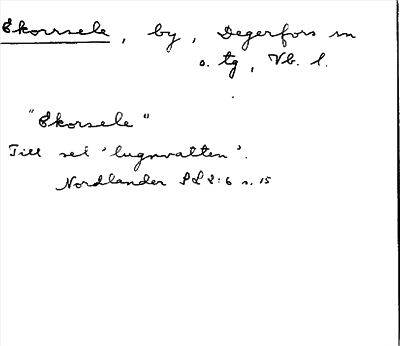 Ekorrsele, by, Degerfors sn
o. tg, Vb. l.
"Ekorsele"
Till sel 'lugnvatten'.
Nordlander PL 2:6 s. 15